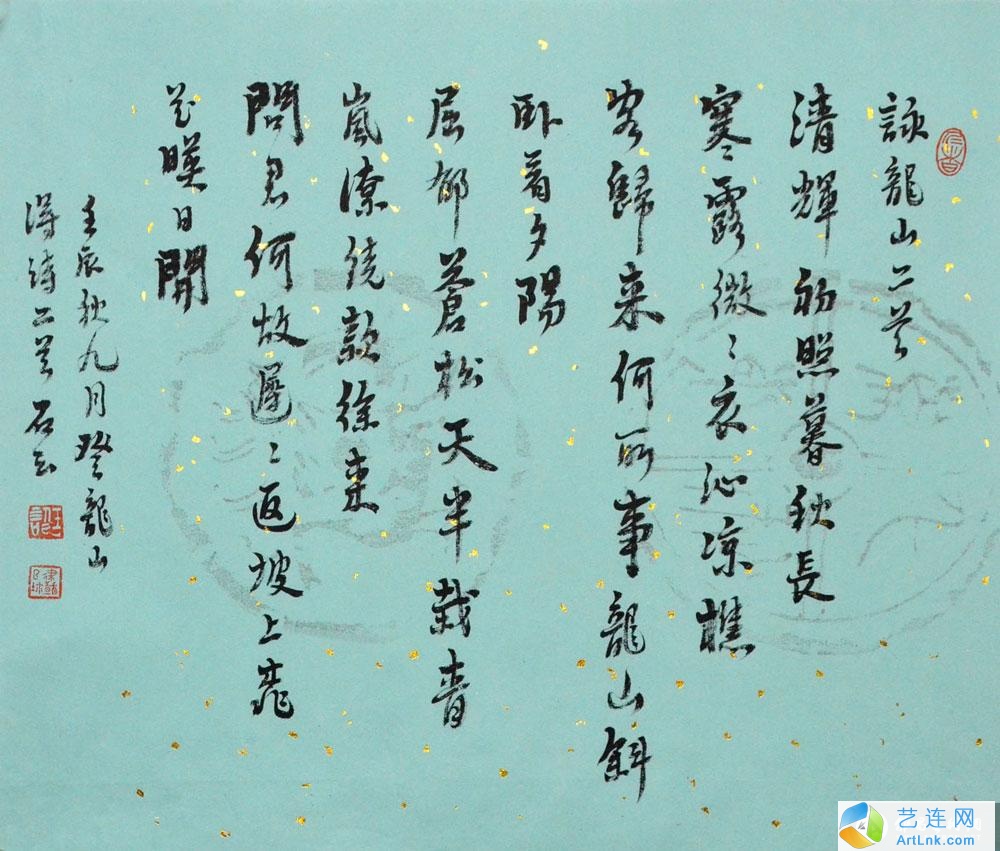 詠龍山二首
清輝初照暮秋長
寒〻露微〻衣沁凉樵
客歸来何所事龍山斜
卧看夕陽
屈郁蒼松天半栽青
嵐潦繞款徐来
問君何故遲〻返坡上
花暎日開
壬辰秋九月登龍山
得詩二首石
艺连网
ArtLnk.com